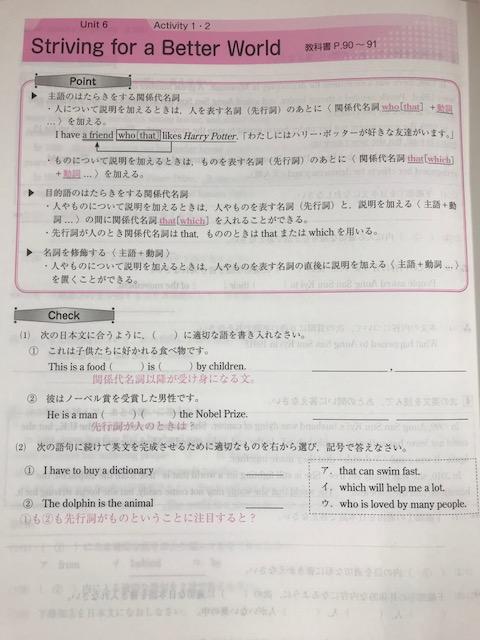 Unit 6 Activity 1・2
Striving for a Better World 教科書 P.90〜91
Point
▶ 主語のはたらきをする関係代名詞
・人について説明を加えるときは，人を表す名詞（先行詞）のあとに〈 関係代名詞 who[that] ＋動詞
…〉を加える。
I have a friend who[that] likes Harry Potter.「わたしにはハリー・ポッターが好きな友達がいます。」
・ものについて説明を加えるときは，ものを表す名詞（先行詞）のあとに〈 関係代名詞 that[which]
＋動詞 …〉を加える。
▶ 目的語のはたらきをする関係代名詞
・人やものについて説明を加えるときは，人やものを表す名詞（先行詞）と，説明を加える〈 主語＋動
詞 …〉の間に関係代名詞 that[which] を入れることができる。
・先行詞が人のとき関係代名詞は that，もののときは that または which を用いる。
▶ 名詞を修飾する〈 主語＋動詞 〉
・人やものについて説明を加えるときは，人やものを表す名詞の直後に説明を加える〈 主語＋動詞 …〉
を置くことができる。
Check
(1) 次の日本文に合うように，（ ）に適切な語を書き入れなさい。
① これは子供たちに好かれる食べ物です。
This is a food ( ) is ( ) by children. ,
関係代名詞以降が受け身になる文。
② 彼はノーベル賞を受賞した男性です。
He is a man ( ) ( ) the Nobel Prize.
先行詞が人のときは？
(2) 次の語句に続けて英文を完成させるために適切なものを右から選び，記号で答えなさい。
① I have to buy a dictionary
② The dolphin is the animal
①も②も先行詞がものということに注目すると？
ア．that can swim fast.
イ．which will help me a lot.
ウ．who is loved by many people.